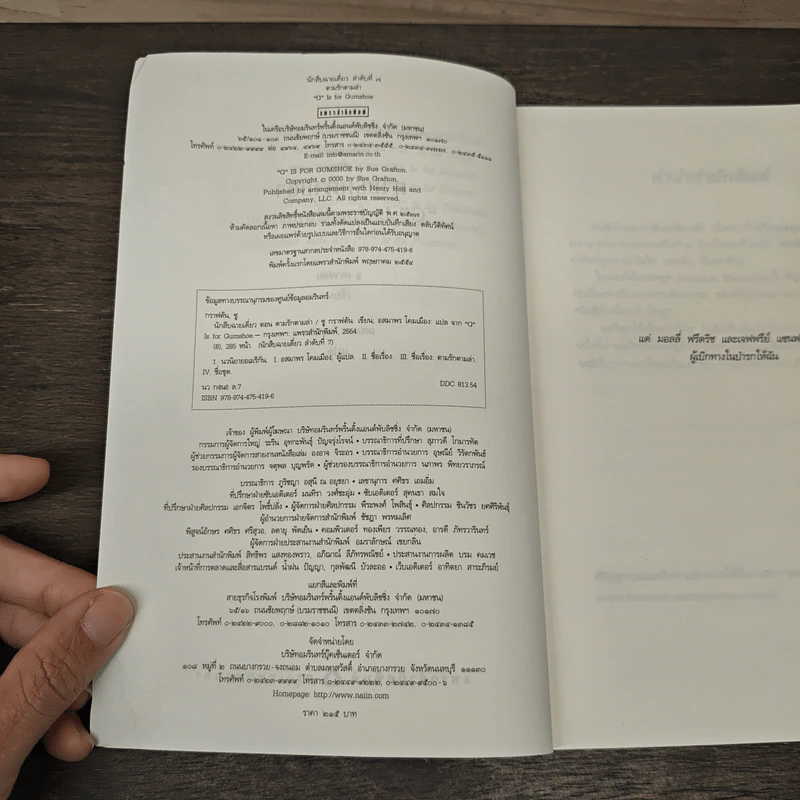 นักสืบฉายเดี่ยว ลำดับที่ ๗
ตามรักตามล่า
"G" Is for Gumshoe
แพรวสำนักพิมพ์
ในเครือบริษัทอมรินทร์พริ้นติ้งแอนด์พับลิชชิ่ง จำกัด (มหาชน)
๖๕/๑๐๑-๑๐๓ ถนนชัยพฤกษ์ (บรมราชชนนี) เขตตลิ่งชัน กรุงเทพฯ ๑๐๑๗๐
โทรศัพท์ ๐-๒๔๒๒-๙๙๙๙ ต่อ ๔๙๖๔, ๔๙๖๙ โทรสาร ๐-๒๔๓๔-๓๕๕๕, ๐-๒๔๓๔-๓๗๗๗, ๐-๒๔๓๕-๕๑๑๑
E-mail: info@amarin.co.th
"G" IS FOR GUMSHOE by Sue Grafton.
Copyright © 0000 by Sue Grafton.
Published by arrangement with Henry Holt and
Company, LLC. All rights reserved.
สงวนลิขสิทธิ์หนังสือเล่มนี้ตามพระราชบัญญัติ พ.ศ. ๒๕๓๗
ห้ามคัดลอกเนื้อหา ภาพประกอบ รวมทั้งดัดแปลงเป็นแถบบันทึกเสียง ตลับวิดีทัศน์
หรือเผยแพร่ด้วยรูปแบบและวิธีการอื่นใดก่อนได้รับอนุญาต
เลขมาตรฐานสากลประจำหนังสือ 978-974-475-419-6
พิมพ์ครั้งแรกโดยแพรวสำนักพิมพ์ พฤษภาคม ๒๕๕๔
ข้อมูลทางบรรณานุกรมของศูนย์ข้อมูลอมรินทร์
กราฟตัน, ซู
นักสืบฉายเดี่ยว ตอน ตามรักตามล่า / ซู กราฟตัน: เขียน; อสมาพร โคมเมือง: แปล จาก "G"
Is for Gumshoe.— กรุงเทพฯ: แพรวสำนักพิมพ์, 2554.
(8), 285 หน้า. (นักสืบฉายเดี่ยว ลำดับที่ 7)
1. นวนิยายอเมริกัน. I. อสมาพร โคมเมือง, ผู้แปล. II. ชื่อเรื่อง. III. ชื่อเรื่อง: ตามรักตามล่า.
IV. ชื่อชุด.
นว ก914ธ ล.7 DDC 813.54
ISBN 978-974-475-419-6
เจ้าของ ผู้พิมพ์ผู้โฆษณา บริษัทอมรินทร์พริ้นติ้งแอนด์พับลิชชิ่ง จำกัด (มหาชน)
กรรมการผู้จัดการใหญ่ ระริน อุทกะพันธุ์ ปัญจรุ่งโรจน์ • บรรณาธิการที่ปรึกษา สุภาวดี โกมารทัต
ผู้ช่วยกรรมการผู้จัดการสายงานหนังสือเล่ม องอาจ จิระอร • บรรณาธิการอำนวยการ อุษณีย์ วิรัตกพันธ์
รองบรรณาธิการอำนวยการ จตุพล บุญพรัด • ผู้ช่วยรองบรรณาธิการอำนวยการ นภาพร พิทยวราภรณ์
บรรณาธิการ ภูริชญา อสุนี ณ อยุธยา • เลขานุการ ศศิธร เอมอิ่ม
ที่ปรึกษาฝ่ายซับเอดิเตอร์ มนทิรา วงศ์ชะอุ่ม • ซับเอดิเตอร์ สุคนธา สมใจ
ที่ปรึกษาฝ่ายศิลปกรรม เอกจิตร โพธิ์ปลั่ง • ผู้จัดการฝ่ายศิลปกรรม พีระพงศ์ โพสินธุ์ • ศิลปกรรม ชินวัชร ยศศิริพันธุ์
ผู้อำนวยการฝ่ายจัดการสำนักพิมพ์ ชัชฎา พรหมเลิศ
พิสูจน์อักษร ศศิธร ศรีสุวอ, ลดายุ พัดเย็น • คอมพิวเตอร์ ทองเพียร วรรณทอง, อารดี ภัทรวารินทร์
ผู้จัดการฝ่ายประสานงานสำนักพิมพ์ อมราลักษณ์ เชยกลิ่น
ประสานงานสำนักพิมพ์ สิทธิพร แสงทองพราว, อภิฌาณ์ ลีภัทรพณิชย์ • ประสานงานการผลิต บรม คมเวช
เจ้าหน้าที่การตลาดและสื่อสารแบรนด์ น้ำฝน ปัญญา, กุลพัฒน์ บัวละออ • เว็บเอดิเตอร์ อาทิตยา สาระภิรมย์
แยกสีและพิมพ์ที่
สายธุรกิจโรงพิมพ์ บริษัทอมรินทร์พริ้นติ้งแอนด์พับลิชชิ่ง จำกัด (มหาชน)
๖๕/๑๖ ถนนชัยพฤกษ์ (บรมราชชนนี) เขตตลิ่งชัน กรุงเทพฯ ๑๐๑๗๐
โทรศัพท์ ๐-๒๔๒๒-๙๐๐๐, ๐-๒๘๘๒-๑๐๑๐ โทรสาร ๐-๒๔๓๓-๒๗๔๒, ๐-๒๔๓๔-๑๓๘๕
จัดจำหน่ายโดย
บริษัทอมรินทร์บุ๊คเซ็นเตอร์ จำกัด
๑๐๘ หมู่ที่ ๒ ถนนบางกรวย-จงถนอม ตำบลมหาสวัสดิ์ อำเภอบางกรวย จังหวัดนนทบุรี ๑๑๑๓๐
โทรศัพท์ ๐-๒๔๒๓-๙๙๙๙ โทรสาร ๐-๒๔๔๙-๙๒๒๒, ๐-๒๔๔๙-๙๕๐๐-๖
Homepage: http://www.naiin.com
ราคา ๒๑๕ บาท
แด่ มอลลี่ ฟรีดริช และเจฟฟรีย์ แซนฟ
ผู้เบิกทางในป่ารกให้ฉัน